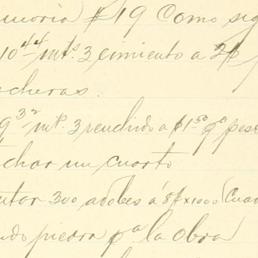 moria) $19 Como sig
10⁴⁴ mts. 3 cimiento a 2
cheras.
9³² mts. 3 rendido a $1.⁵⁰
char un cuarto
tar 300 adobes á 8 p x 1000 (Cua
ndo piedra pª la obra)